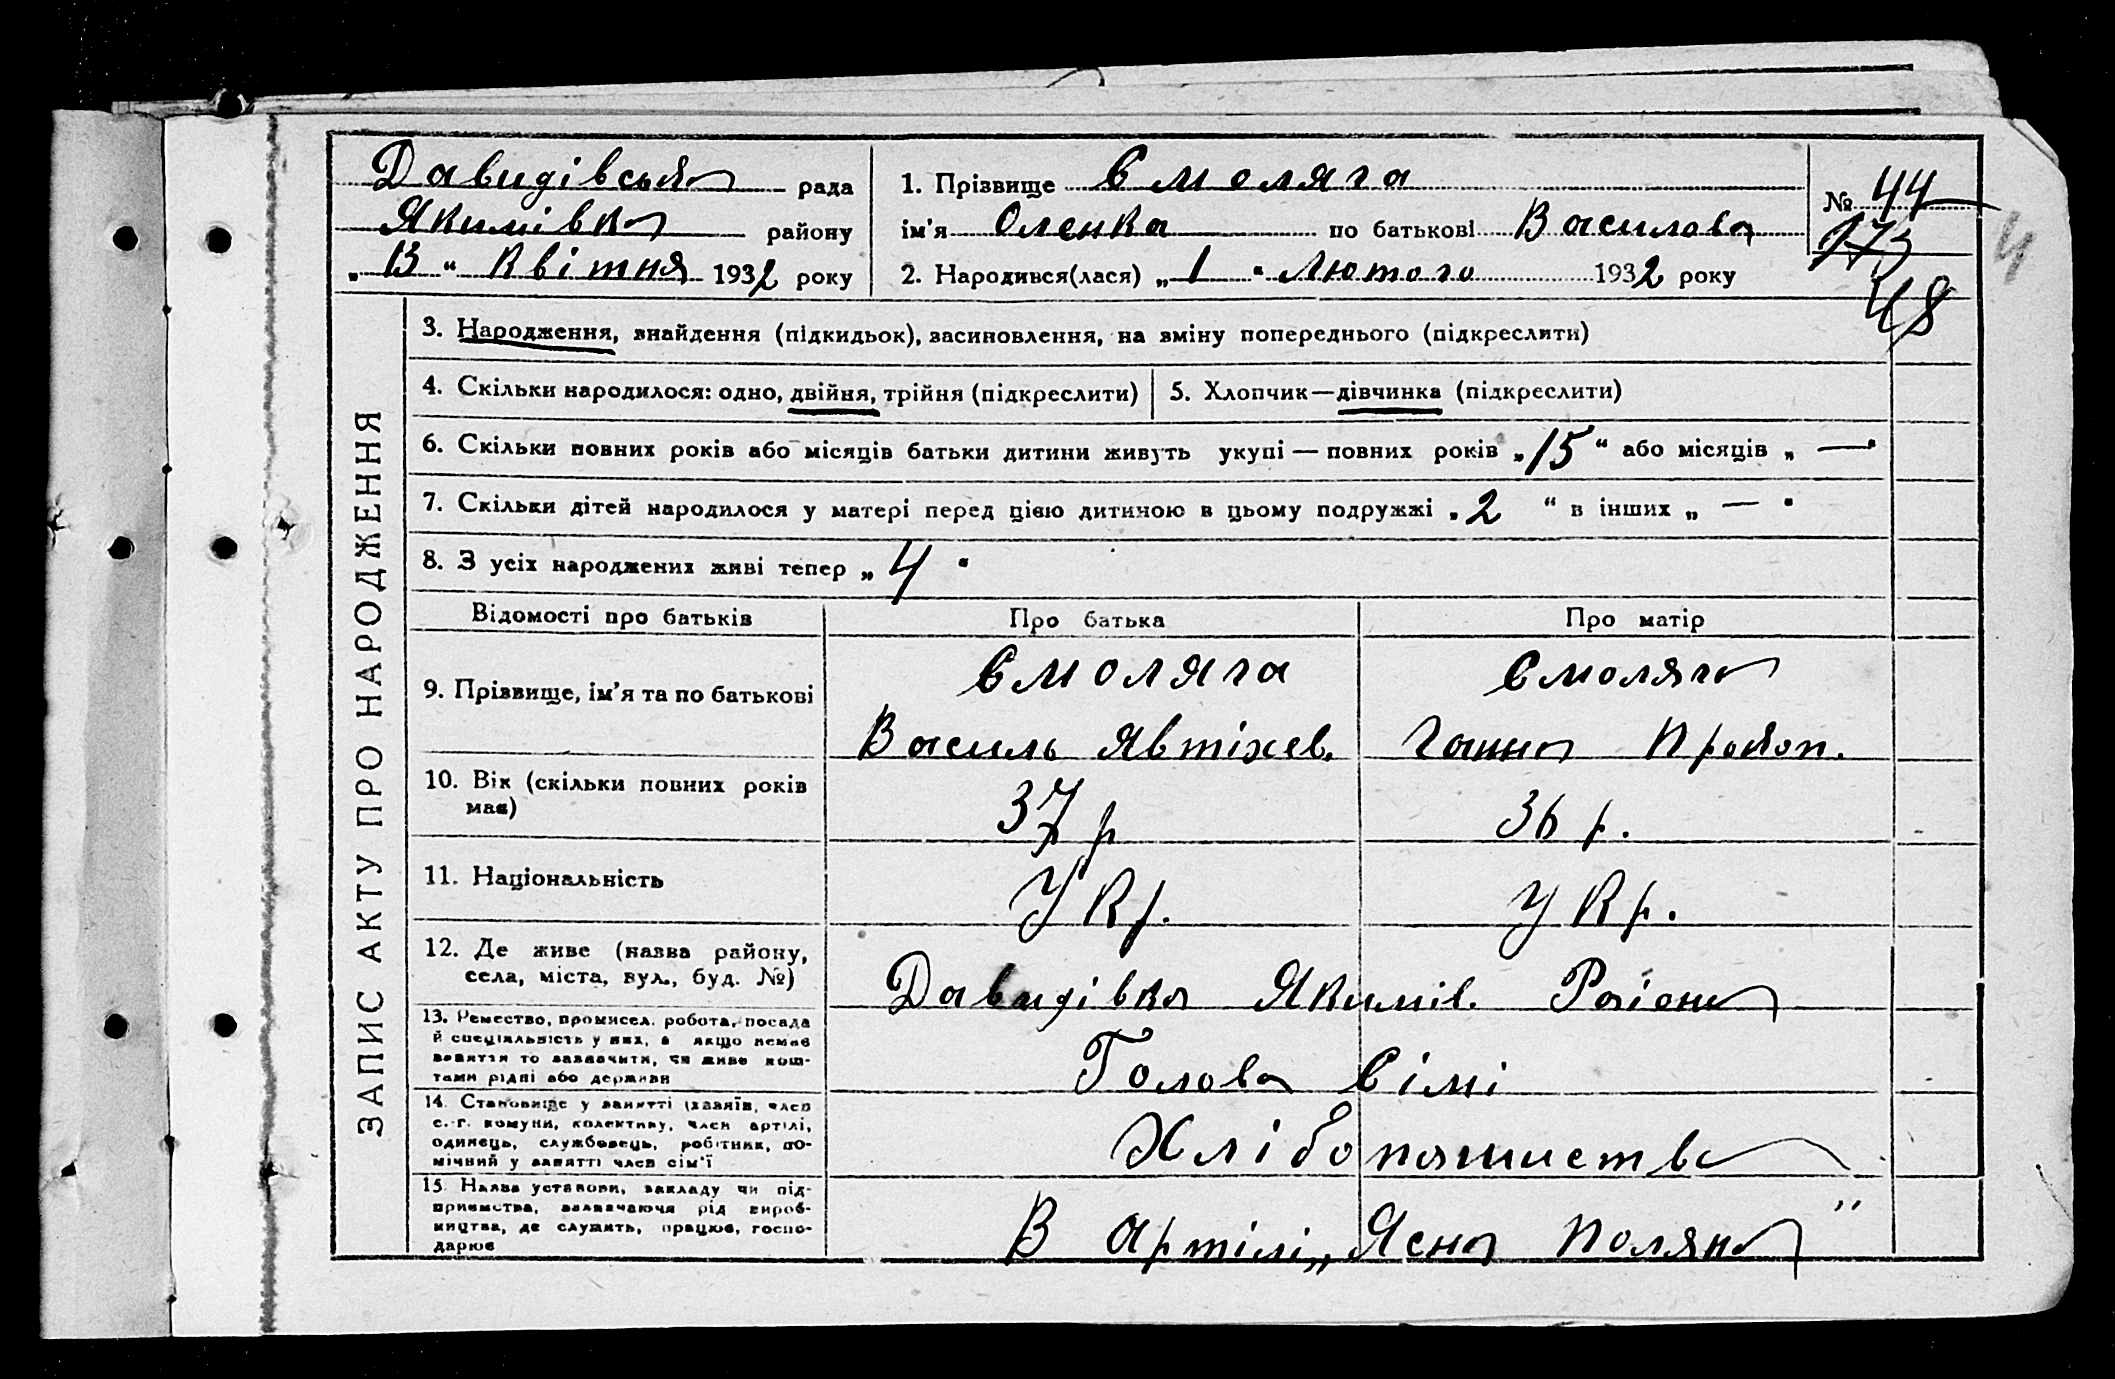 Давидівська рада
Якимівка району
„ 13 “ Квітня 1932 року
1. Прізвище Смоляга
ім'я Оленка по батькові Василова
2. Народився(лася) „ 1 “ Лютого 1932 року
№ 44
173
48
4
ЗАПИС АКТУ ПРО НАРОДЖЕННЯ
3. Народження, знайдення (підкидьок), засиновлення, на зміну попереднього (підкреслити)
4. Скільки народилося: одно, двійня, трійня (підкреслити)
5. Хлопчик—дівчинка (підкреслити)
6. Скільки повних років або місяців батьки дитини живуть укупі — повних років „ 15 “ або місяців „ — “
7. Скільки дітей народилося у матері перед цією дитиною в цьому подружжі „ 2 “ в інших „ — “
8. З усіх народжених живі тепер „ 4 “
Відомості про батьків
Про батька
Про матір
9. Прізвище, ім'я та по батькові
Смоляга
Василь Явтіхев.
Смоляга
Ганна Прокоп.
10. Вік (скільки повних років
має)
37 р
36 р.
11. Національність
Укр.
Укр.
12. Де живе (назва району,
села, міста, вул., буд. №)
Давидівка Якимів. Району
13. Ремество, промисел, робота, посада
й спеціяльність у них, а якщо немає
заняття то зазначити, чи живе кош-
тами рідні або держави
Голова Сімі
14. Становище у занятті (хазяїв, член
с.-г. комуни, колективу, член артілі,
одинець, службовець, робітник, по-
мічний у занятті член сім'ї
Хлібопашество
15. Назва установи, закладу чи під-
приємства, зазначаючи рід вироб-
ництва, де служить, працює, госпо-
дарює
В Артілі „Ясна Поляна"